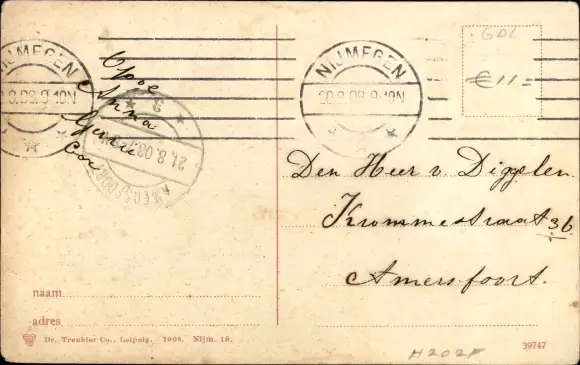 NIJMEGEN
20.8.08.9-10N
NIJMEGEN
20.8.08.9-10N
GDL
€11=
Opoe
Anna
Cor
21.8.08.
AMERSFOORT
Den Heer v. Diggelen
Krommestraat 36
Amersfoort.
naam
adres
Dr. Trenkler Co., Leipzig. 1908. Nijm. 18.
39747
H202F